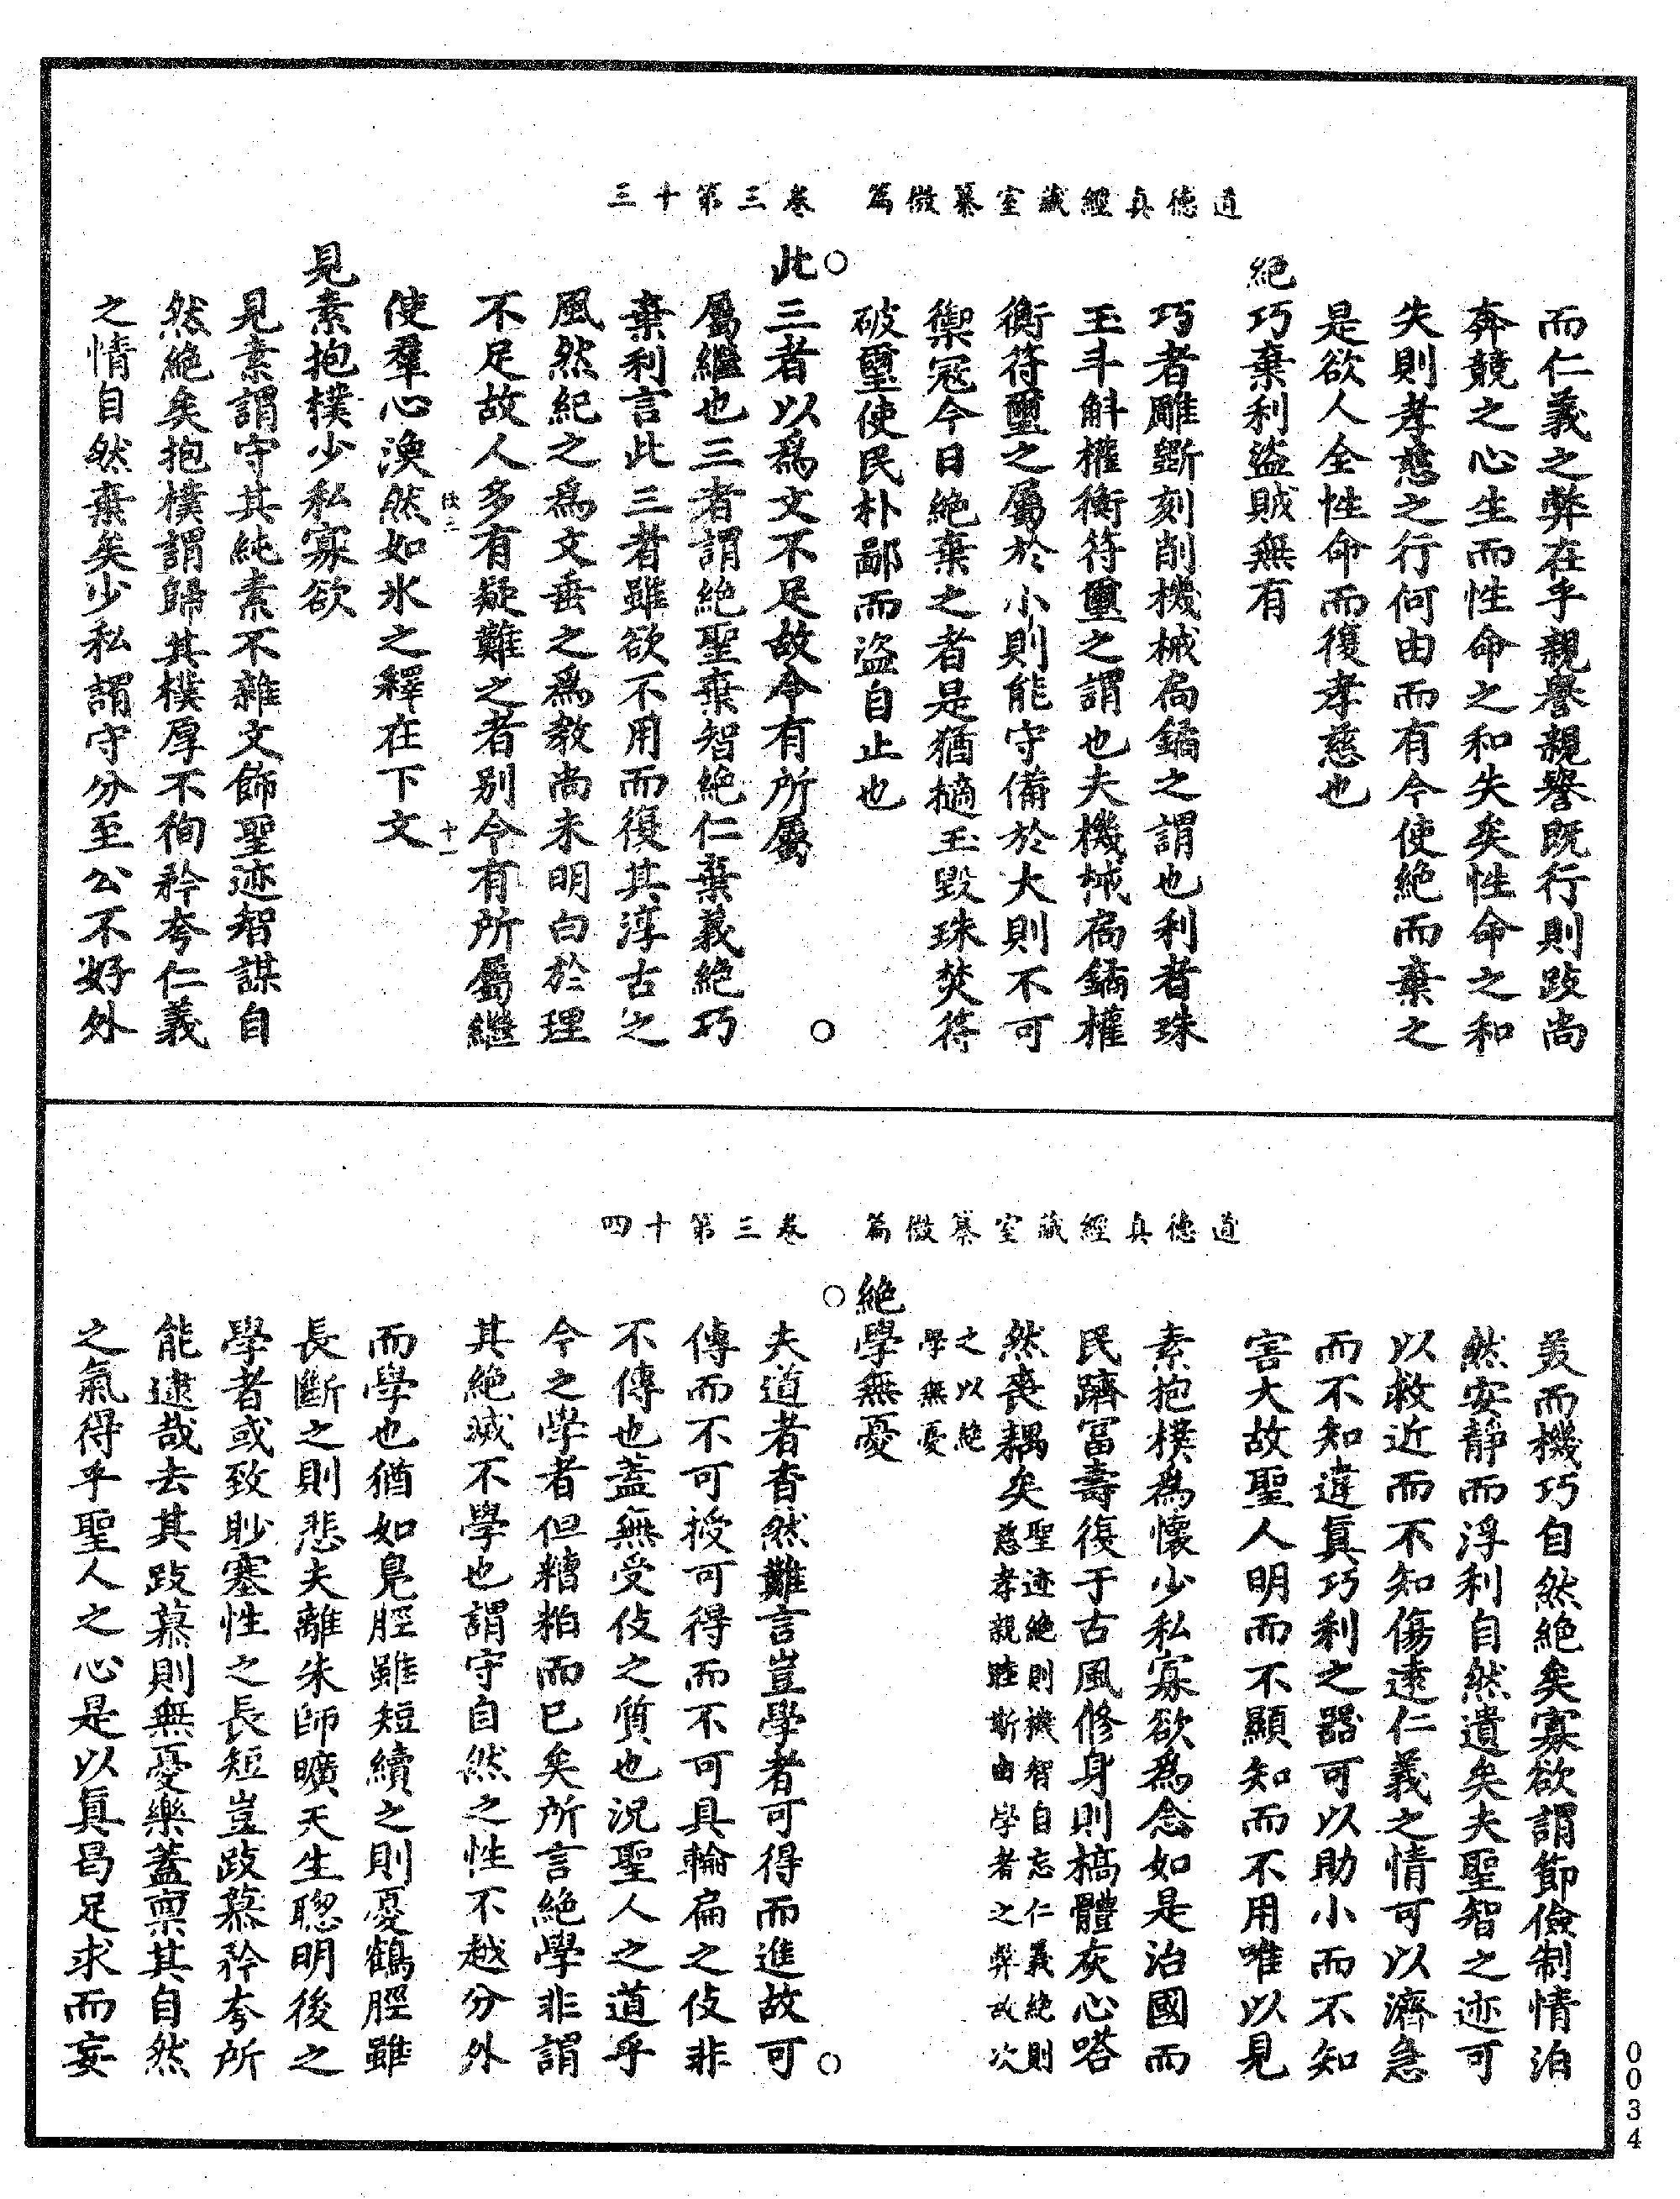 道德真經藏室纂微篇　卷三第十三
而仁義之弊在乎親譽親譽既行則跂尚
奔競之心生而性命之和失矣性命之和
失則孝慈之行何由而有今使絕而棄之
是欲人全性命而復孝慈也
絕巧棄利盜賊無有
巧者雕斵刻削機械扃鐍之謂也利者珠
玉斗斛權衡符璽之謂也夫機械扃鐍權
衡符璽之屬於小則能守備於大則不可
禦冦今日絕棄之者是猶擿玉毀珠焚符
破璽使民朴鄙而盜自止也
○
此三者以爲文不足故令有所屬
○
屬繼也三者謂絕聖棄智絕仁棄義絕巧
棄利言此三者雖欲不用而復其淳古之
風然紀之爲文垂之爲教尚未明白於理
不足故人多有疑難之者别令有所屬繼
十一
使羣心渙然如氷之釋在下文
見素抱樸少私寡欲
見素謂守其純素不雜文飾聖迹智謀自
然絕矣抱樸謂歸其樸厚不徇矜夸仁義
之情自然棄矣少私謂守分至公不好外
道德真經藏室纂微篇　卷三第十四
羙而機巧自然絕矣寡欲謂節儉制情泊
然安靜而浮利自然遺矣夫聖智之迹可
以救近而不知傷遠仁義之情可以濟急
而不知違眞巧利之器可以助小而不知
害大故聖人明而不顯知而不用唯以見
素抱樸爲懷少私寡欲爲念如是治國而
民躋冨壽復于古風修身則槁體灰心嗒
然喪耦矣聖迹絕則機智自忘仁義絕則
慈孝親睦斯由學者之弊故次
之以絕
學無憂
絕學無憂
○
夫道者杳然難言豈學者可得而進故可
○
傳而不可授可得而不可具輪扁之伎非
不傳也蓋無受伎之質也況聖人之道乎
今之學者但糟粕而已矣所言絕學非謂
其絕滅不學也謂守自然之性不越分外
而學也猶如鳬脛雖短續之則憂鶴脛雖
長斷之則悲夫離朱師曠天生聰明後之
學者或致眇塞性之長短豈跂慕矜夸所
能逮哉去其跂慕則無憂樂蓋禀其自然
之氣得乎聖人之心是以眞曷足求而妄
0034